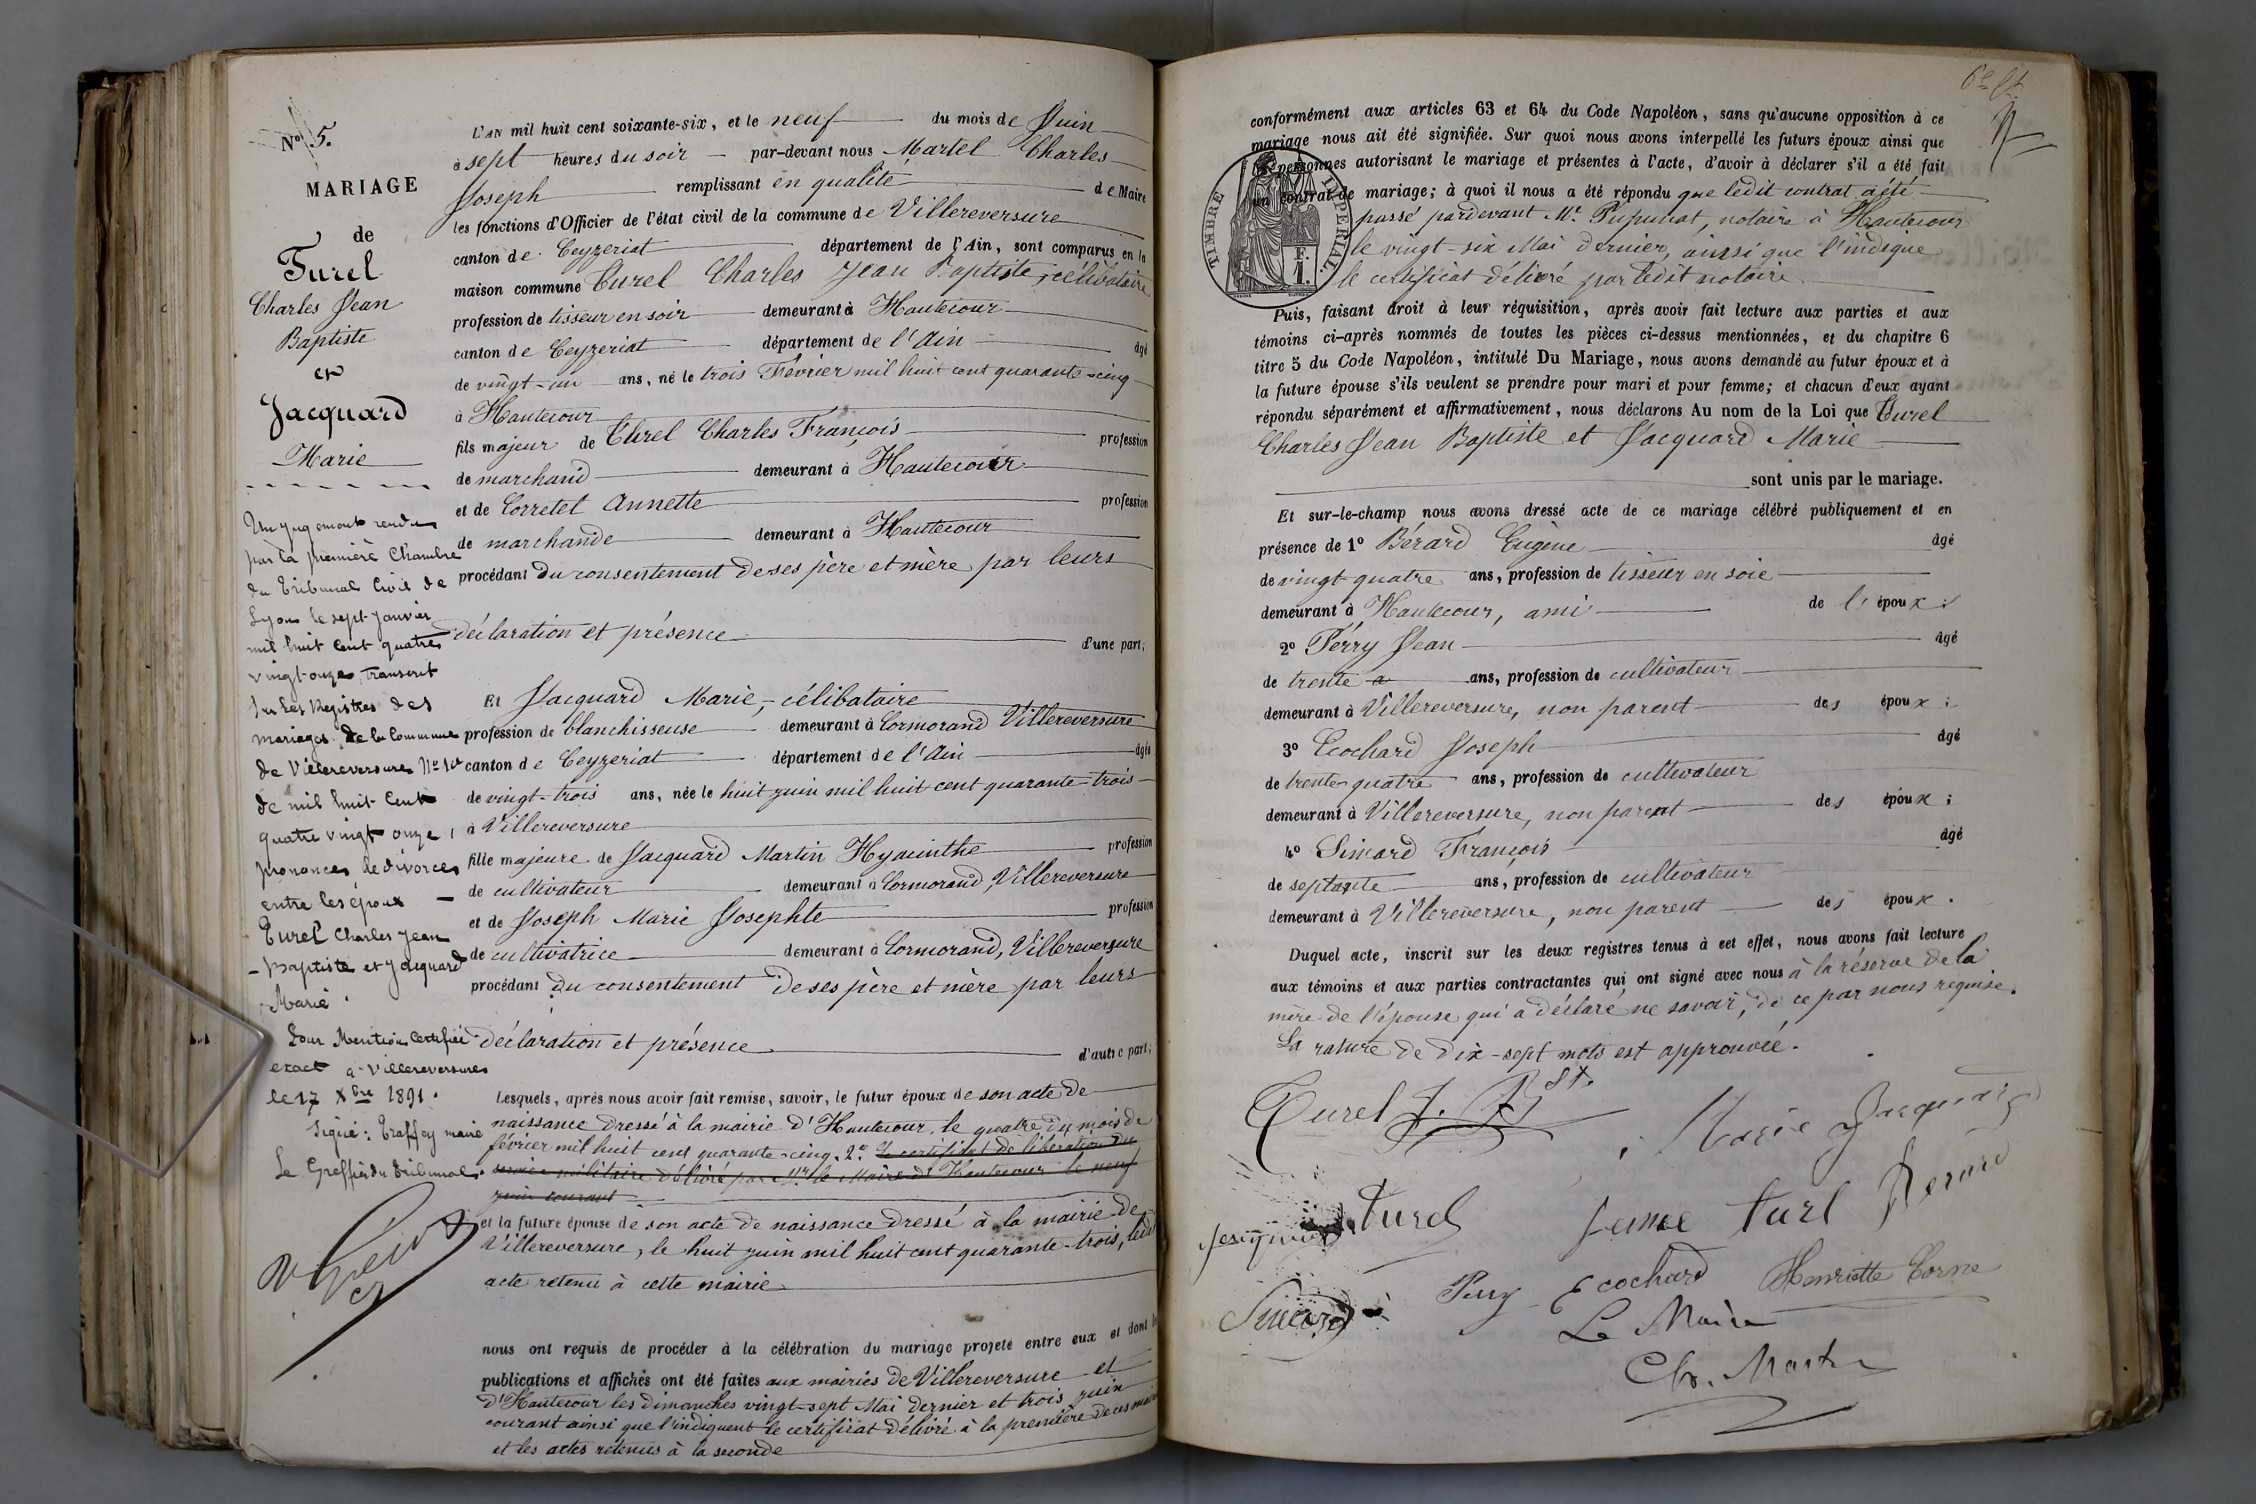 No 5.
MARIAGE
de
Turel
Charles Jean
Baptiste
et
Jacquard
Marie
Un jugement rendu
par la première Chambre
du Tribunal Civil de
Lyon le sept Janvier
mil huit cent quatre
vingt-onze, transcrit
sur les Registres des
mariages de la Commune
de Villereversure No 1er
de mil huit cent
quatre vingt onze,
prononce le divorce
entre les époux —
Turel Charles Jean
- Baptiste et Jacquard
Marie.
Pour Mention Certifiée
exact à Villereversure
le 17 Xbre 1891.
Signé: Traffey maire
Le Greffier du Tribunal.
L'AN mil huit cent soixante-six, et le neuf du mois de Juin
à sept heures du soir par-devant nous Martel Charles
Joseph remplissant en qualité de Maire
les fonctions d'Officier de l'état civil de la commune de Villereversure
canton de Ceyzeriat département de l'Ain, sont comparus en la
maison commune Turel Charles Jean Baptiste, célibataire
profession de tisseur en soir demeurant à Hautecour
canton de Ceyzeriat département de l'Ain âgé
de vingt-un ans, né le trois Février mil huit cent quarante-cinq
à Hautecour
fils majeur de Turel Charles François profession
de marchand demeurant à Hautecour
et de Corretel Annette profession
de marchande demeurant à Hautecour
procédant du consentement de ses père et mère par leurs
déclaration et présence d'une part;
Et Jacquard Marie, célibataire
profession de blanchisseuse demeurant à Cormorand Villereversure
canton de Ceyzeriat département de l'Ain âgée
de vingt-trois ans, née le huit juin mil huit cent quarante-trois
à Villereversure
fille majeure de Jacquard Martin Hyacinthe profession
de cultivateur demeurant à Cormorand, Villereversure
et de Joseph Marie Josephte profession
de cultivatrice demeurant à Cormorand, Villereversure
procédant du consentement de ses père et mère par leurs
déclaration et présence d'autre part;
Lesquels, après nous avoir fait remise, savoir, le futur époux de son acte de
naissance dressé à la mairie d'Hautecour, le quatre du mois de
février mil huit cent quarante-cinq, 2o Le certificat de libération du
service militaire délivré par Mr. le Maire de Hautecour le neuf
juin courant
et la future épouse de son acte de naissance dressé à la mairie de
Villereversure, le huit juin mil huit cent quarante-trois, ledit
acte retenu à cette mairie
nous ont requis de procéder à la célébration du mariage projeté entre eux et dont les
publications et affiches ont été faites aux mairies de Villereversure et
d'Hautecour les dimanches vingt-sept Mai dernier et trois juin
courant ainsi que l'indiquent le certificat délivré à la première de ces mairies
et les actes retenus à la seconde
conformément aux articles 63 et 64 du Code Napoléon, sans qu'aucune opposition à ce
mariage nous ait été signifiée. Sur quoi nous avons interpellé les futurs époux ainsi que
les personnes autorisant le mariage et présentes à l'acte, d'avoir à déclarer s'il a été fait
un contrat de mariage; à quoi il nous a été répondu que ledit contrat a été
passé pardevant Me. Pupunat, notaire à Hautecour
le vingt-six Mai dernier, ainsi que l'indique
le certificat délivré par ledit notaire
TIMBRE IMPERIAL
F.
1.
Puis, faisant droit à leur réquisition, après avoir fait lecture aux parties et aux
témoins ci-après nommés de toutes les pièces ci-dessus mentionnées, et du chapitre 6
titre 5 du Code Napoléon, intitulé Du Mariage, nous avons demandé au futur époux et à
la future épouse s'ils veulent se prendre pour mari et pour femme; et chacun d'eux ayant
répondu séparément et affirmativement, nous déclarons Au nom de la Loi que Turel
Charles Jean Baptiste et Jacquard Marie
sont unis par le mariage.
Et sur-le-champ nous avons dressé acte de ce mariage célébré publiquement et en
présence de 1o Bérard Eugène âgé
de vingt-quatre ans, profession de tisseur en soie
demeurant à Hautecour, ami de l'époux;
2o Férry Jean âgé
de trente ans, profession de cultivateur
demeurant à Villereversure, non parent des époux;
3o Ecochard Joseph âgé
de trente-quatre ans, profession de cultivateur
demeurant à Villereversure, non parent des époux;
4o Simard François âgé
de septante ans, profession de cultivateur
demeurant à Villereversure, non parent des époux.
Duquel acte, inscrit sur les deux registres tenus à cet effet, nous avons fait lecture
aux témoins et aux parties contractantes qui ont signé avec nous à la réserve de la
mère de l'épouse qui a déclaré ne savoir, de ce par nous requise.
La rature de dix-sept mots est approuvée.
Turel J. Bst.
Marie Jacquard
Turel
femme turl
Berard
Simard
Ferry
Ecochard
Henriette Corne
Le Maire
Ch. Martel